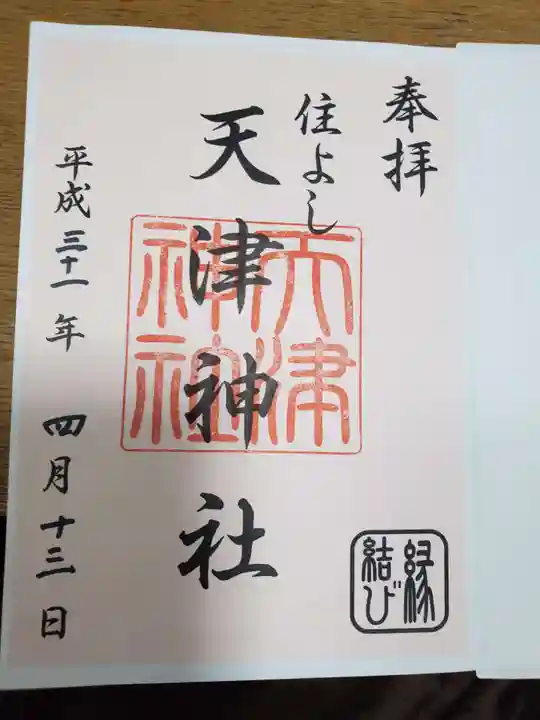 奉拝
住よし
天津神社
天津
神社
平成三十一年 四月十三日
縁
結び